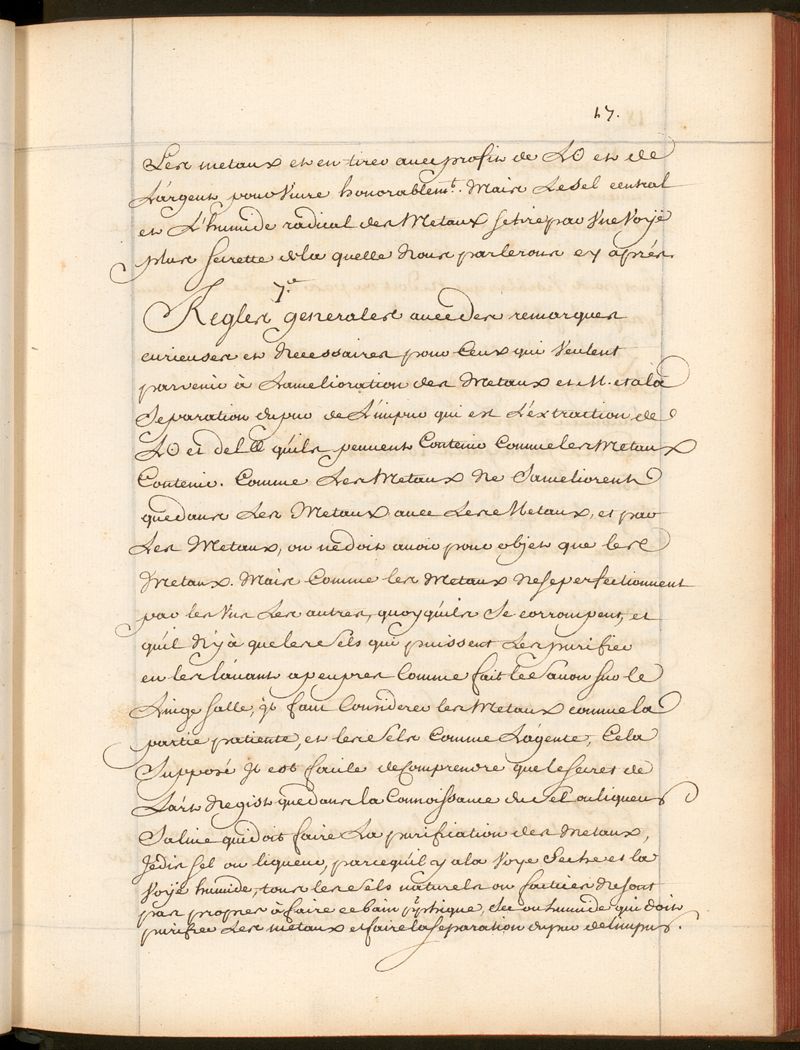 17.
Les metaux et en tirer avec profit de L☉ et de
L'argent pour Vivre honorablemt. Mais Le Sel central
et L'humide radical des Metaux se tire par Vne Voÿe
plus secrette de la quelle Nous parlerons cy aprés
7.e
Regles generales avec des remarques
curieuses et Necessaires pour Ceux qui Veulent
parvenir à Lamelioration des Metaux et M. et a la
Separation du pur de L'impur qui est L'extraction de
L☉ et de L☾ quils peuvent Contenir Comme les Metaux
Contenir. Comme Les Metaux Ne Sameliorent
que dans Les Metaux avec Les Metaux, et par
Les Metaux, on ne doit avoir pour objet que les
Metaux. Mais Comme les Metaux Ne se perfectionnent
par les Vns Les autres, quoy quils Se corrompent, et
quil N'y à que les Sels qui puissent Les purifier
en les lavant a peu pres Comme fait le Savon sur le
Linge Salle, il faut Considerer les Metaux comme la
partie patiente, et les Sels Comme L'agente, Cela
Supposé Jl est facile de Comprendre que le secret de
L'art Ne gist que dans la Connoissance du Sel ou liqueur
Saline qui doit faire La purification des Metaux,
Je dis Sel ou liqueur, parce qu'il y a la Voÿe Seche et la
Voÿe humide, tous les Sels naturels ou factices Ne sont
pas propres à faire ce bain , Sec ou humide qui doit
purifier Les metaux et faire la separation du pur de l'impur.